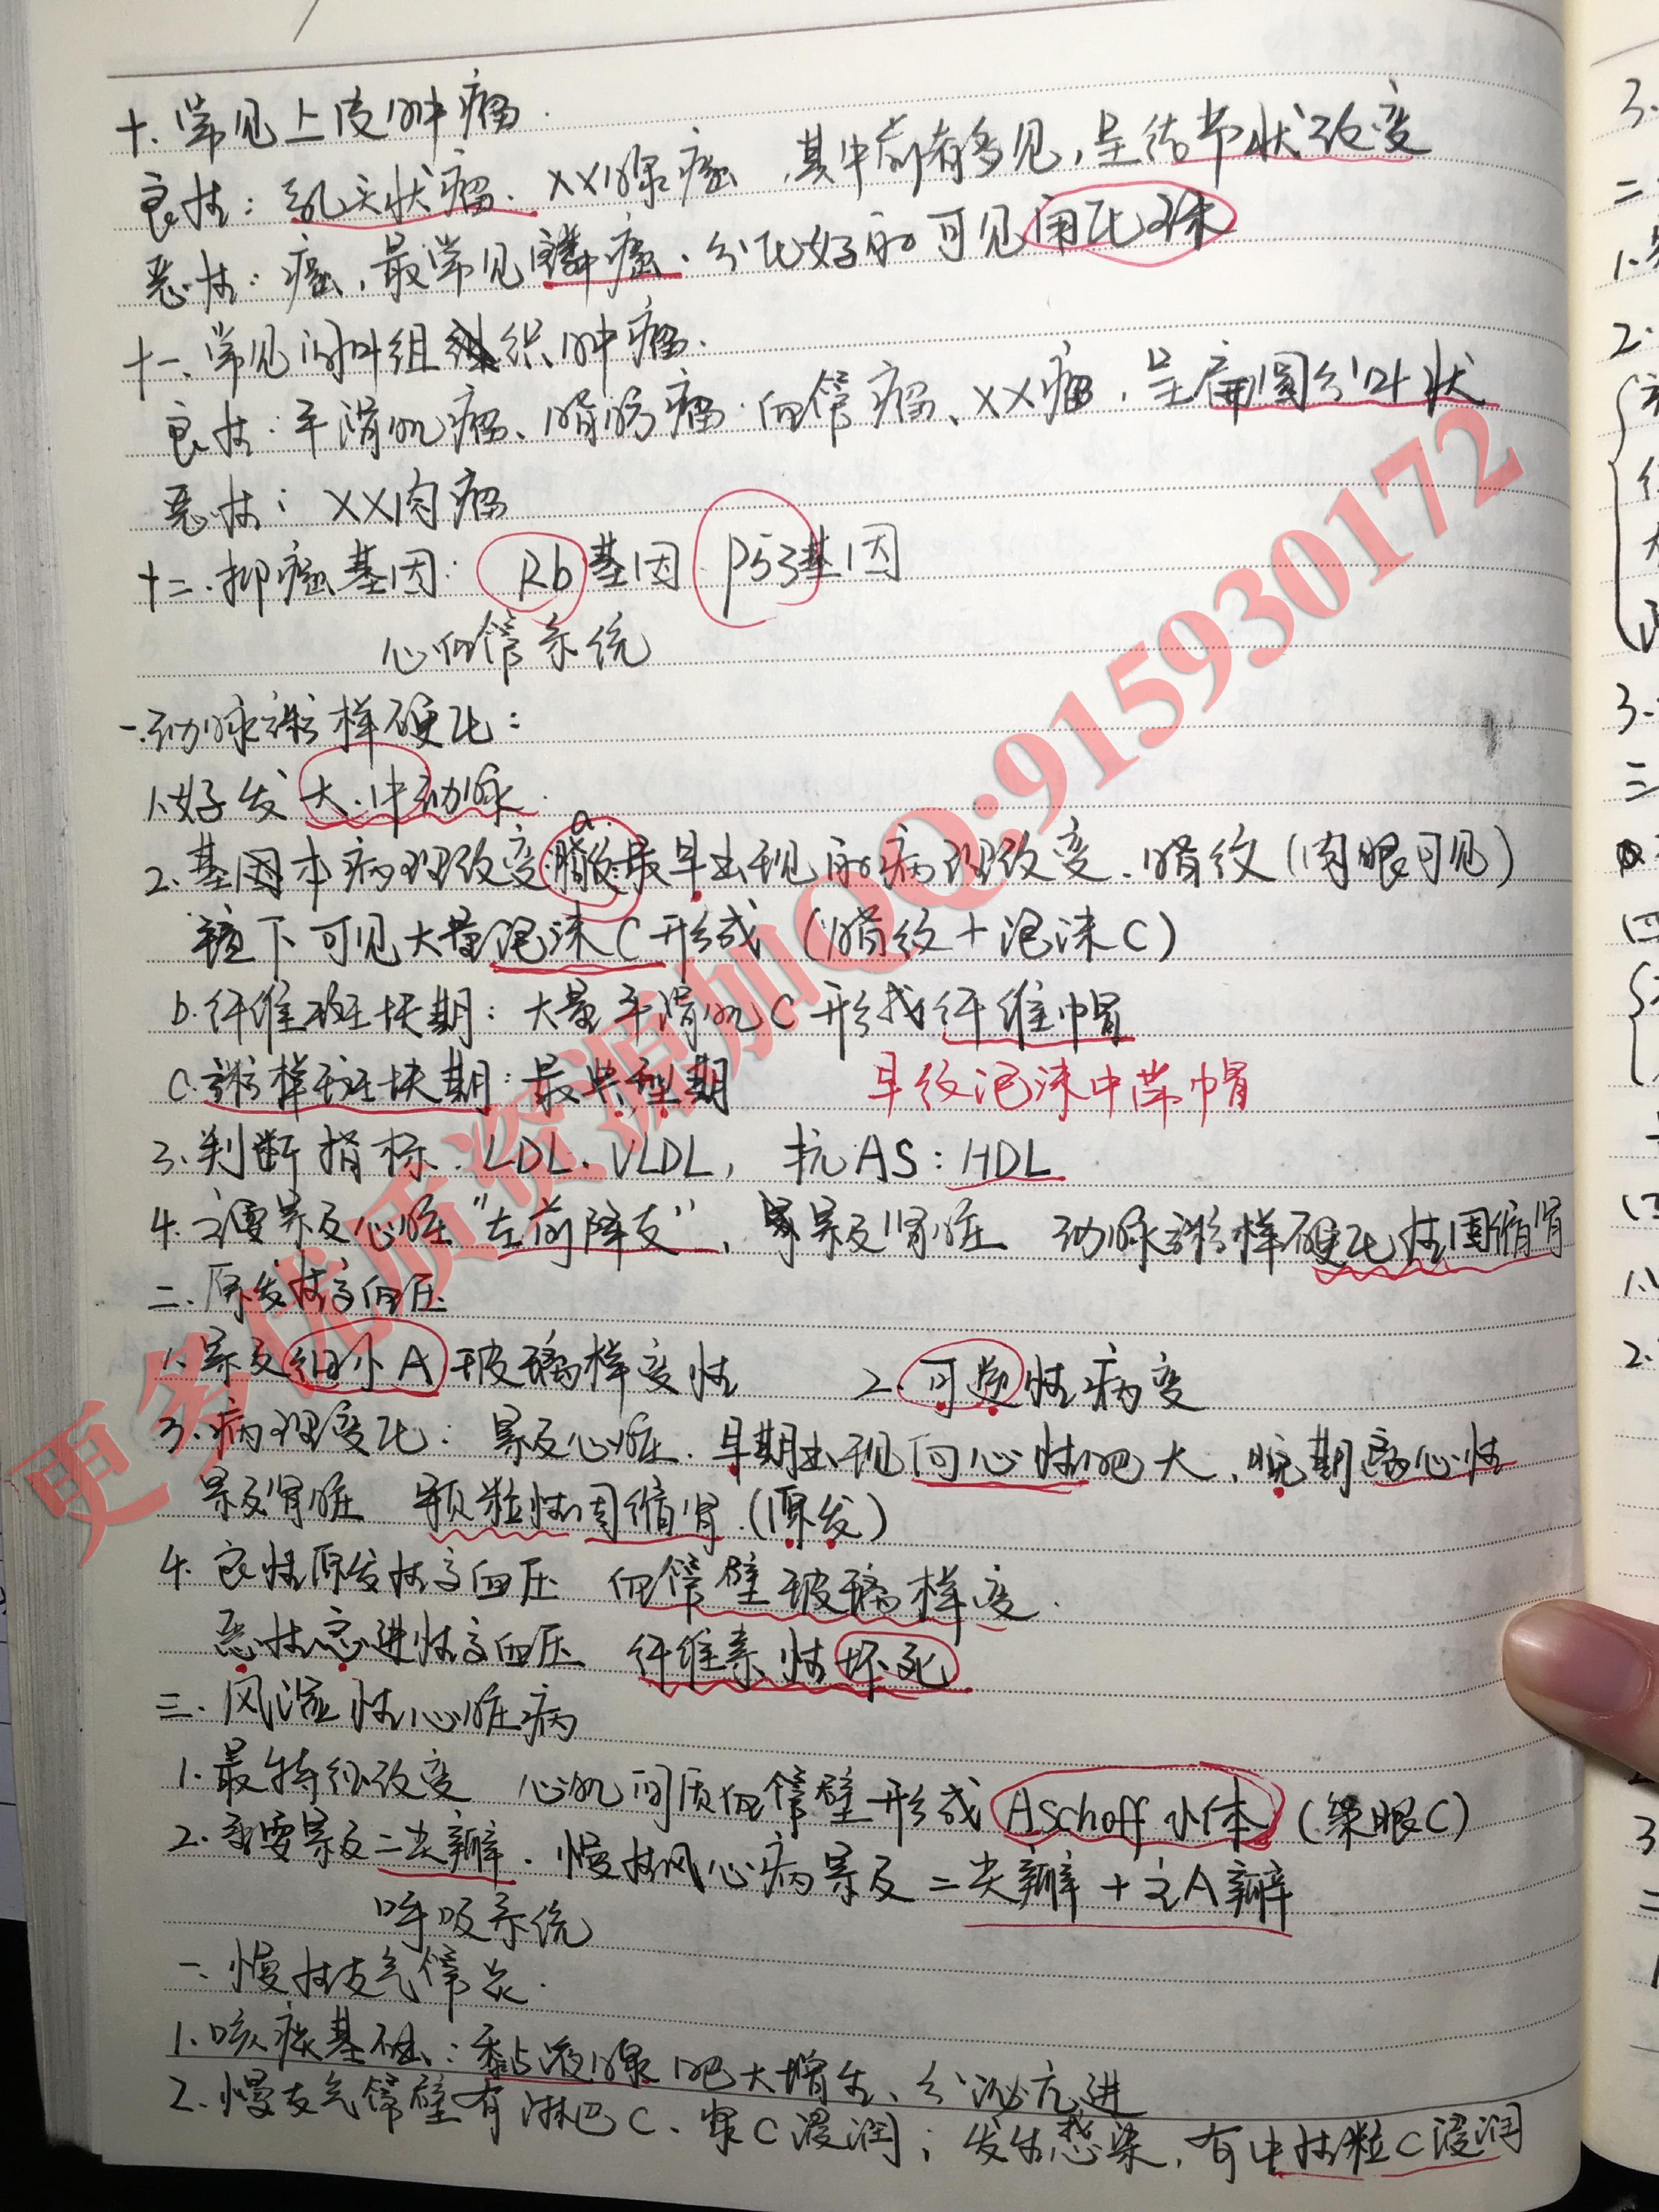 十、常见上皮肿瘤.
良性：乳头状瘤、XX腺瘤，其中前者多见，呈结节状改变
恶性：癌，最常见鳞癌．分化好的可见角化珠
十一、常见间叶组织肿瘤.
良性：平滑肌瘤、脂肪瘤、血管瘤、XX瘤，呈扁圆分叶状
恶性：XX肉瘤
十二、抑癌基因：Rb基因、P53基因
心血管系统
一.动脉粥样硬化：
1.好发大、中动脉.
2.基本病理改变：a.脂纹：最早出现的病理改变、脂纹（肉眼可见）
镜下可见大量泡沫C形成（脂纹＋泡沫C）
b.纤维斑块期：大量平滑肌C形成纤维帽
c.粥样斑块期：最典型期 早纹泡沫中带帽
3.判断指标：LDL、VLDL，抗AS：HDL
4.主要累及心脏“左前降支”，累及肾脏 动脉粥样硬化性固缩肾
二.原发性高血压
1.累及细小A玻璃样变性 2.可逆性病变
3.病理变化：累及心脏．早期出现向心性肥大，晚期离心性
累及肾脏 颗粒性固缩肾.（原发）
4.良性原发性高血压 血管壁玻璃样变.
恶性急进性高血压 纤维素性坏死
三.风湿性心脏病
1.最特征改变 心肌间质血管壁形成Aschoff小体（枭眼C）
2.主要累及二尖瓣．慢性风心病累及二尖瓣＋主A瓣
呼吸系统
一.慢性支气管炎.
1.咳痰基础：黏液腺肥大增生、分泌亢进
2.慢支气管壁有淋巴C、浆C浸润；发生感染，有中性粒C浸润
更多优质资源加QQ:915930172